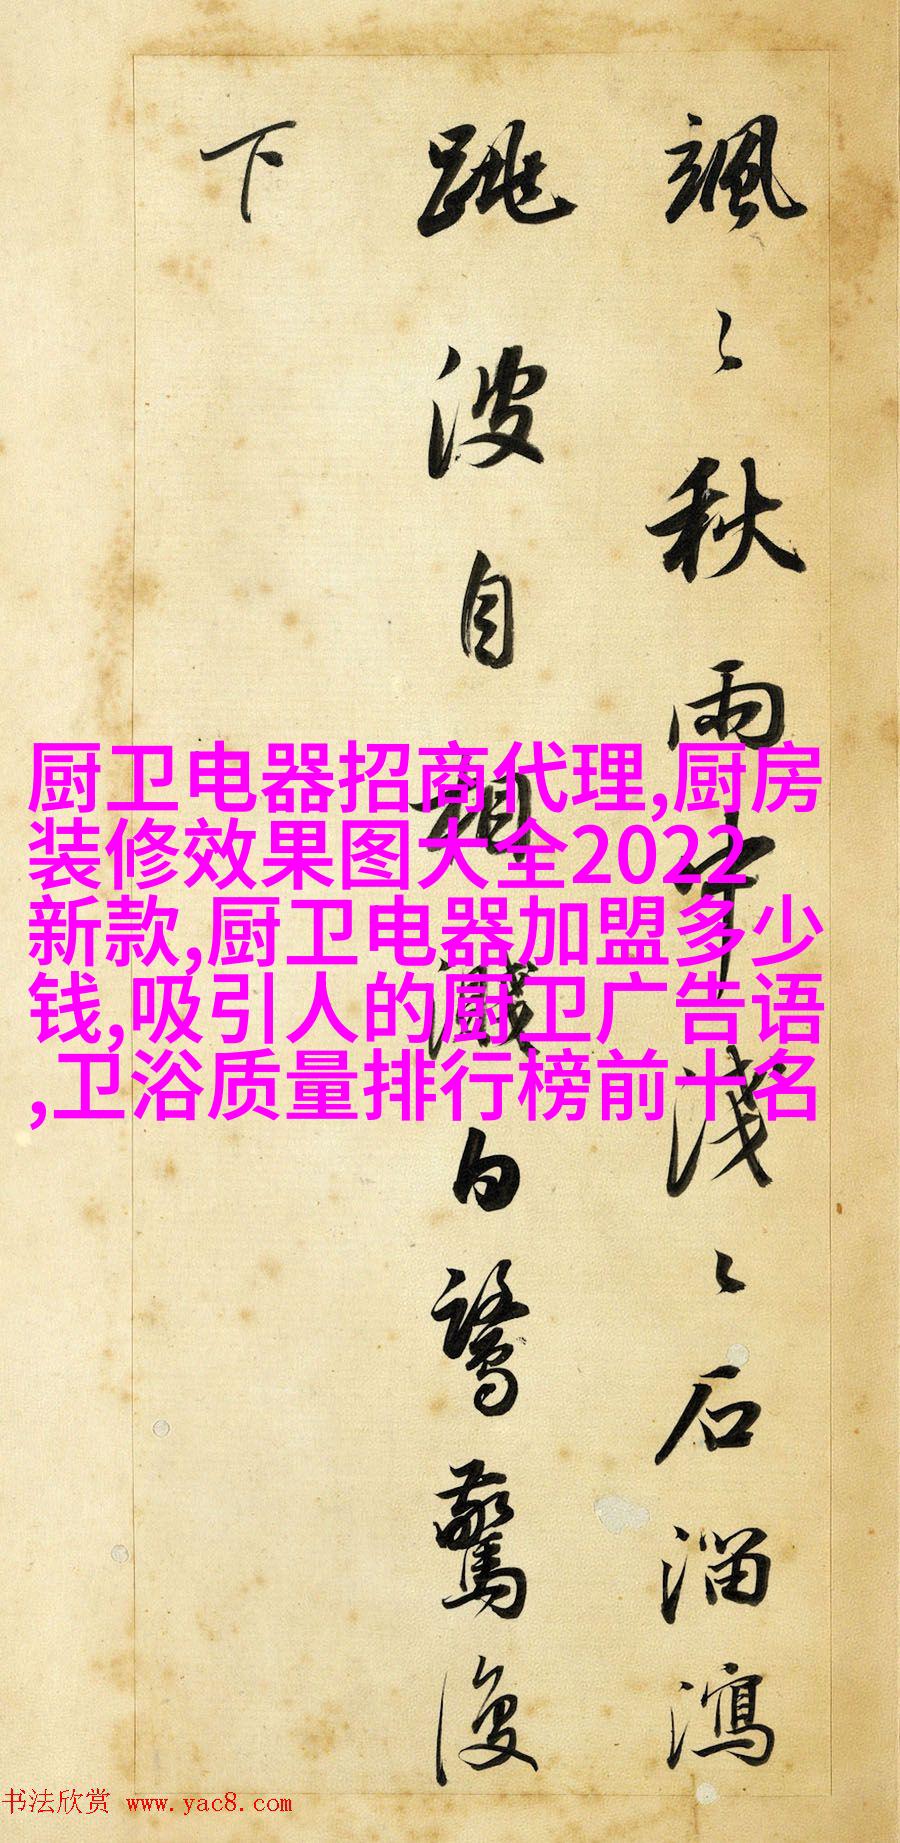 飒〻秋雨中浅〻石溜泻
跳波自相溅白鹭惊复
下
厨卫电器招商代理,厨房
装修效果图大全2022
新款,厨卫电器加盟多少
钱,吸引人的厨卫广告语
,卫浴质量排行榜前十名
书法欣赏 www.yac8.com